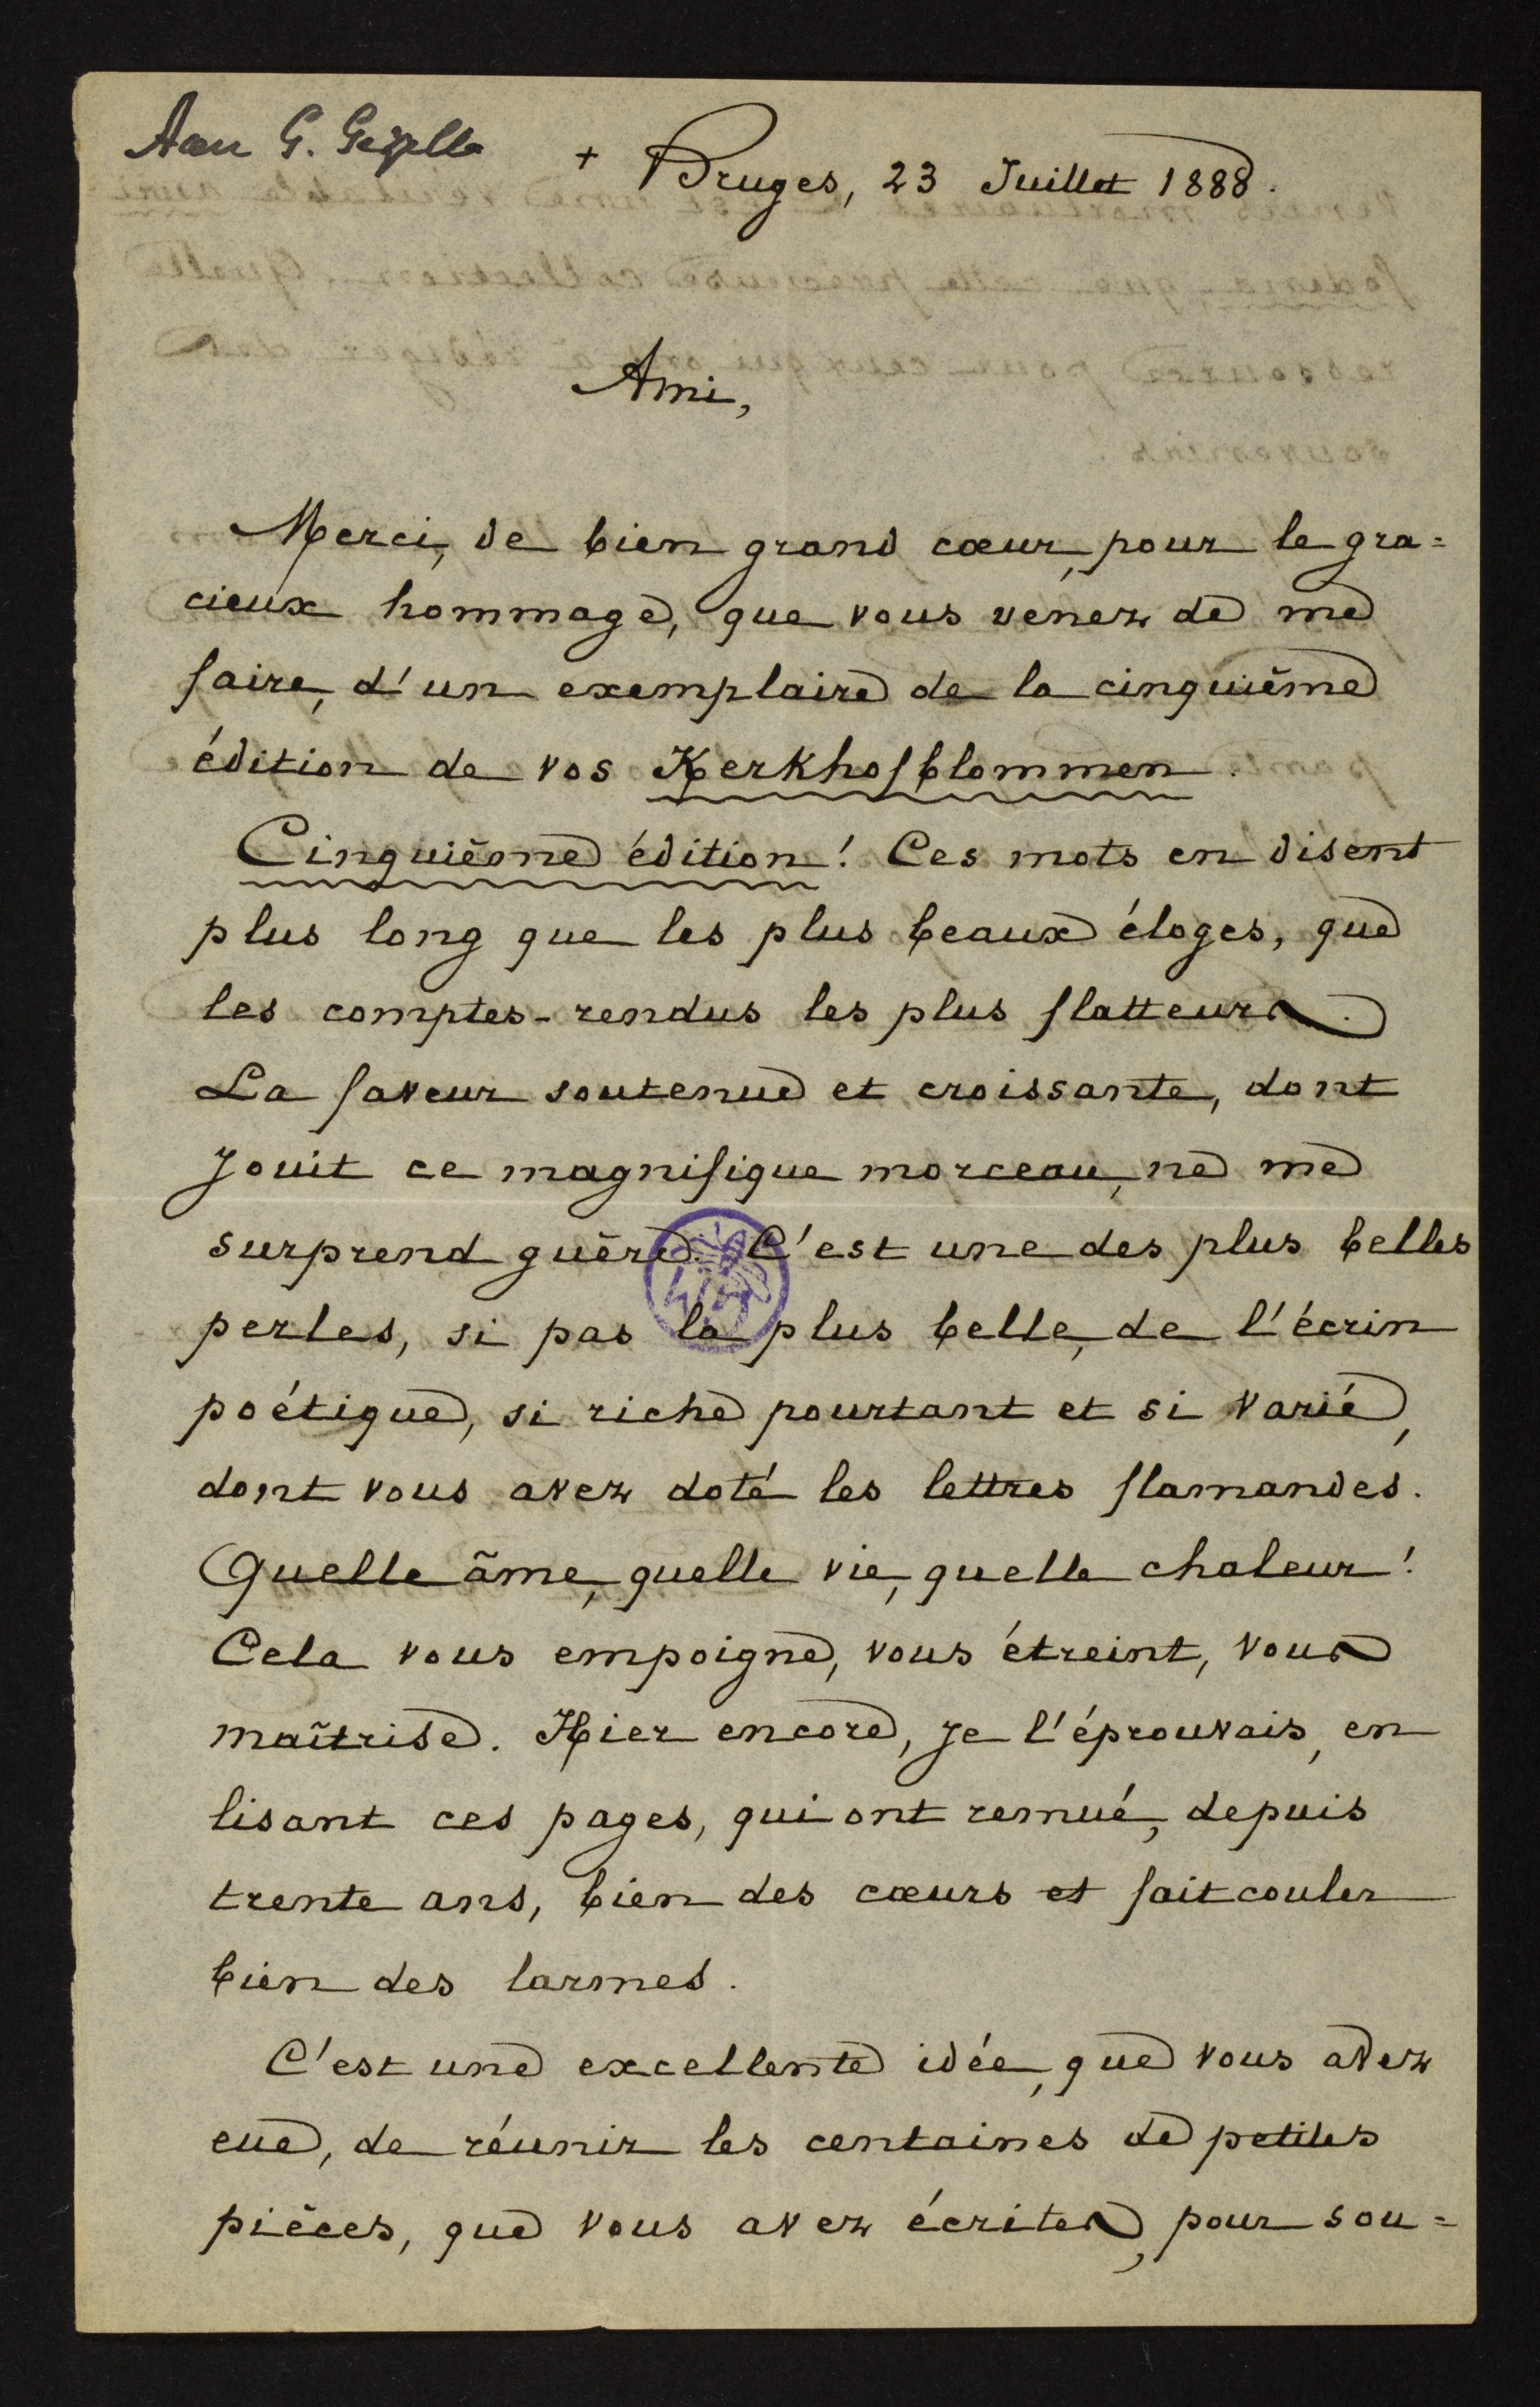 Aan G. Gezelle
+ Bruges, 23 Juillet 1888.
Ami,
Merci, de bien grand cœur, pour le gra=
cieux hommage, que vous venez de me
faire, d'un exemplaire de la cinquième
édition de vos Kerkhofblommen.
Cinquième édition! Ces mots en disent
plus long que les plus beaux éloges, que
les comptes-rendus les plus flatteurs.
La faveur soutenue et croissante, dont
jouit ce magnifique morceau, ne me
surprend guère. C'est une des plus belles
perles, si pas la plus belle, de l'écrin
poétique, si riche pourtant et si varié,
dont vous avez doté les lettres flamandes.
Quelle âme, quelle vie, quelle chaleur!
Cela vous empoigne, vous étreint, vous
maîtrise. Hier encore, je l'éprouvais, en
lisant ces pages, qui ont remué, depuis
trente ans, bien des cœurs et fait couler
bien des larmes.
C'est une excellente idée, que vous avez
eue, de réunir les centaines de petites
pièces, que vous avez écrites, pour sou=